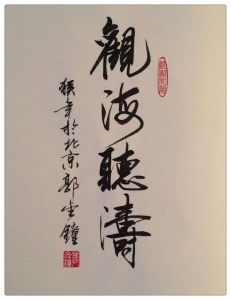 觀海聽濤
癸年於北京郭金鐘